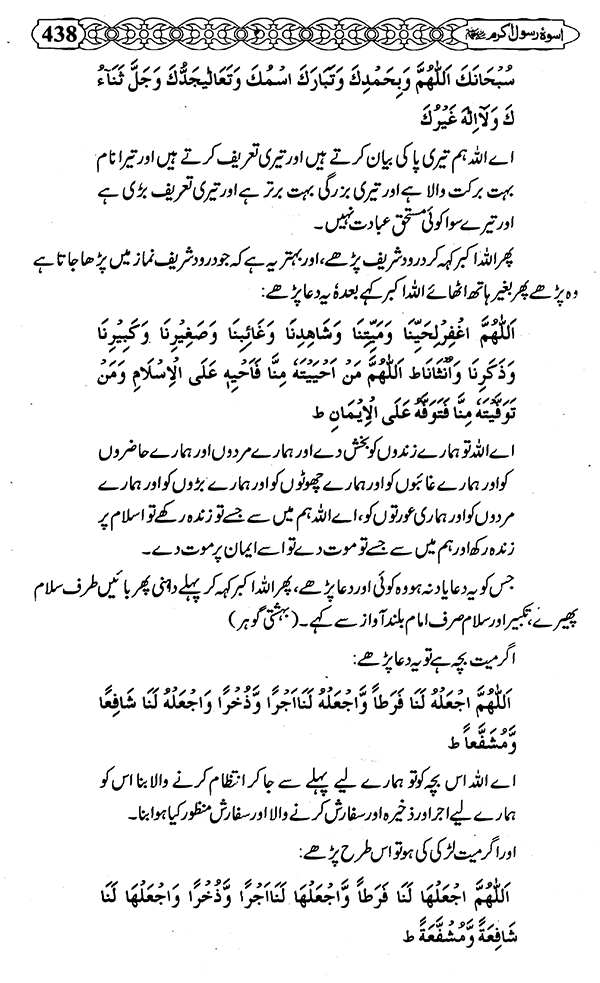 438 اسوۂ رسول اکرم ﷺ
سُبْحَانَكَ اللّٰهُمَّ وَبِحَمْدِكَ وَتَبَارَكَ اسْمُكَ وَتَعَالٰيجَدُّكَ وَجَلَّ ثَنَاءُ
كَ وَلَآاِلٰهَ غَيْرُكَ
اے اللہ ہم تیری پاکی بیان کرتے ہیں اور تیری تعریف کرتے ہیں اور تیرا نام
بہت برکت والا ہے اور تیری بزرگی بہت برتر ہے اور تیری تعریف بڑی ہے
اور تیرے سوا کوئی مستحق عبادت نہیں۔
پھر اللہ اکبر کہہ کر درود شریف پڑھے، اور بہتر یہ ہے کہ جو درود شریف نماز میں پڑھا جاتا ہے
وہ پڑھے پھر بغیر ہاتھ اٹھائے اللہ اکبر کہے بعدہٗ یہ دعا پڑھے:
اَللّٰهُمَّ اغْفِرْلِحَيِّنَا وَمَيِّتِنَا وَشَاهِدِنَا وَغَائِبِنَا وَصَغِيْرِنَا وَكَبِيْرِنَا
وَذَكَرِنَا وَاُنْثَانَاط اَللّٰهُمَّ مَنْ اَحْيَيْتَهٗ مِنَّا فَاَحْيِهٖ عَلَى الْاِسْلَامِ وَمَنْ
تَوَفَّيْتَهٗ مِنَّا فَتَوَفَّهٗ عَلَى الْاِيْمَانِ ط
اے اللہ تو ہمارے زندوں کو بخش دے اور ہمارے مردوں اور ہمارے حاضروں
کو اور ہمارے غائبوں کو اور ہمارے چھوٹوں کو اور ہمارے بڑوں کو اور ہمارے
مردوں کو اور ہماری عورتوں کو، اے اللہ ہم میں سے جسے تو زندہ رکھے تو اسلام پر
زندہ رکھ اور ہم میں سے جسے تو موت دے تو اسے ایمان پر موت دے۔
جس کو یہ دعا یاد نہ ہو وہ کوئی اور دعا پڑھے، پھر اللہ اکبر کہہ کر پہلے داہنی پھر بائیں طرف سلام
پھیرے، تکبیر اور سلام صرف امام بلند آواز سے کہے۔ (بہشتی گوہر)
اگر میت بچہ ہے تو یہ دعا پڑھے:
اَللّٰهُمَّ اجْعَلْهُ لَنَا فَرَطاً وَّاجْعَلْهُ لَنَااَجْرًا وَّذُخْرًا وَاجْعَلْهُ لَنَا شَافِعًا
وَّمُشَفَّعاً ط
اے اللہ اس بچہ کو تو ہمارے لیے پہلے سے جا کر انتظام کرنے والا بنا اس کو
ہمارے لیے اجر اور ذخیرہ اور سفارش کرنے والا اور سفارش منظور کیا ہوا بنا۔
اور اگر میت لڑکی کی ہو تو اس طرح پڑھے:
اَللّٰهُمَّ اجْعَلْهَا لَنَا فَرَطاً وَّاجْعَلْهَا لَنَااَجْرًا وَّذُخْرًا وَاجْعَلْهَا لَنَا
شَافِعَةً وَّمُشَفَّعَةً ط